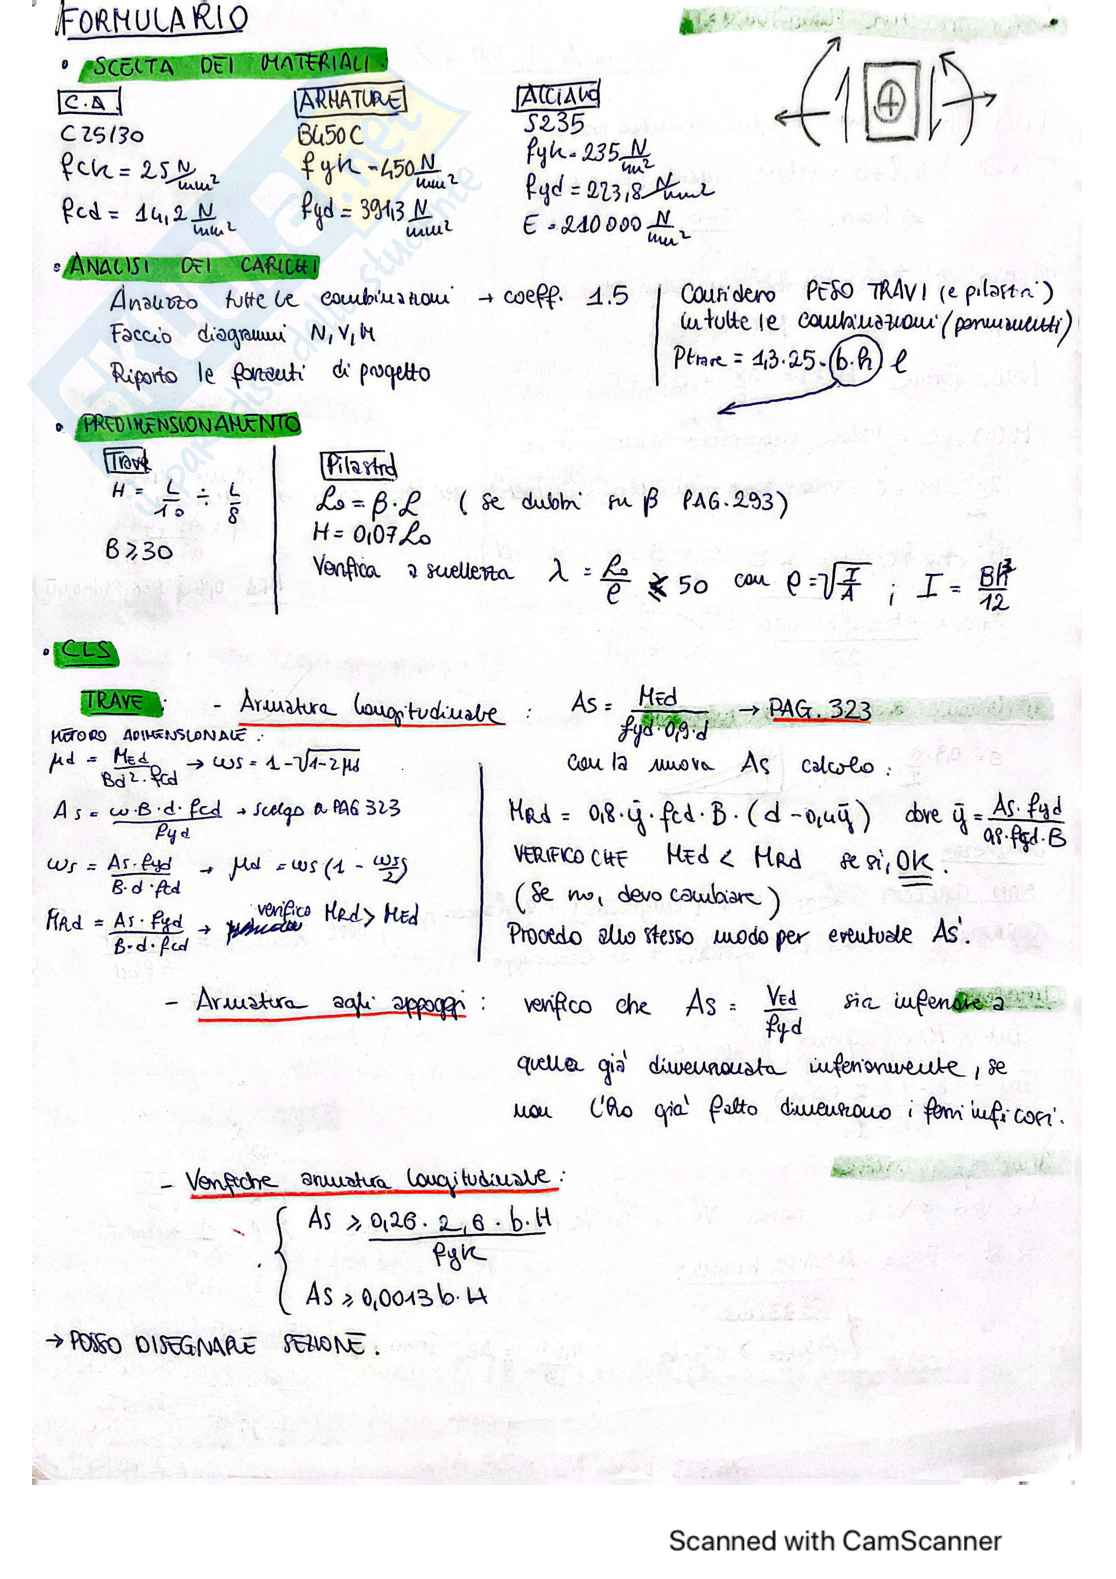 FORMULARIO
• SCELTA DEI MATERIALI
C.A.
C25/30
fck = 25 N/mm²
fcd = 14,2 N/mm²
ARMATURE
B450C
fyk = 450 N/mm²
fyd = 391,3 N/mm²
ACCIAIO
S235
fyk = 235 N/mm²
fyd = 223,8 N/mm²
E = 210000 N/mm²
• ANALISI DEI CARICHI
Analizzo tutte le combinazioni → coeff. 1.5
Faccio diagrammi N, V, M
Riporto le forzanti di progetto
Considero PESO TRAVI (e pilastri)
in tutte le combinazioni (permanenti)
Ptrave = 1,3·25·(b·h) l
• PREDIMENSIONAMENTO
Trave
H = L/10 ÷ L/8
B ≥ 30
Pilastro
L₀ = β·L (se dubbi su β PAG. 293)
H = 0,07 L₀
Verifica a snellezza λ = L₀/ρ ≤ 50 con ρ = √(I/A) ; I = BH³/12
• CLS
TRAVE : - Armatura longitudinale : As = MEd/(fyd·0,9·d) → PAG. 323
METODO ADIMENSIONALE :
μd = MEd/(Bd²·fcd) → ωs = 1-√(1-2μd)
As = ω·B·d·fcd/fyd → scelgo a PAG 323
ωs = As·fyd/(B·d·fcd) → μd = ωs(1 - ωs/2)
MRd = As·fyd/(B·d·fcd) → verifico MRd > MEd
con la nuova As calcolo :
MRd = 0,8·ȳ·fcd·B·(d-0,4ȳ) dove ȳ = As·fyd/(0,8·fcd·B)
VERIFICO CHE MEd < MRd se si, OK.
(Se no, devo cambiare)
Procedo allo stesso modo per eventuale As'.
- Armatura agli appoggi : verifico che As = VEd/fyd sia inferiore a
quella già dimensionata inferiormente, se
non l'ho già fatto dimensiono i ferri inf. così.
- Verifiche armatura longitudinale :
As ≥ 0,26·2,6·b·H/fyk
As ≥ 0,0013 b·H
→ POSSO DISEGNARE SEZIONE.
Scanned with CamScanner